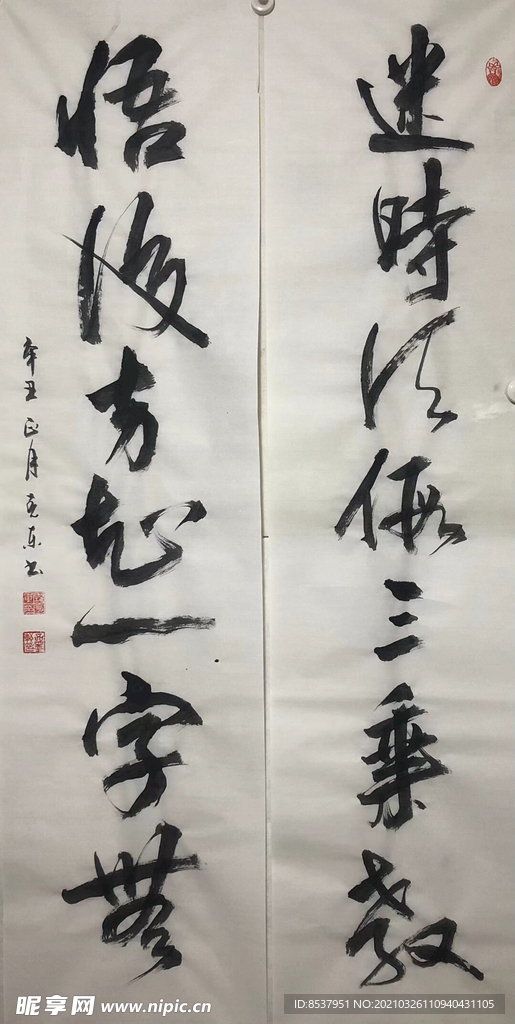 迷時須假三乘教
悟後方知一字無
辛丑正月克东书
昵享网 www.nipic.cn
ID:8537951 NO:20210326110940431105